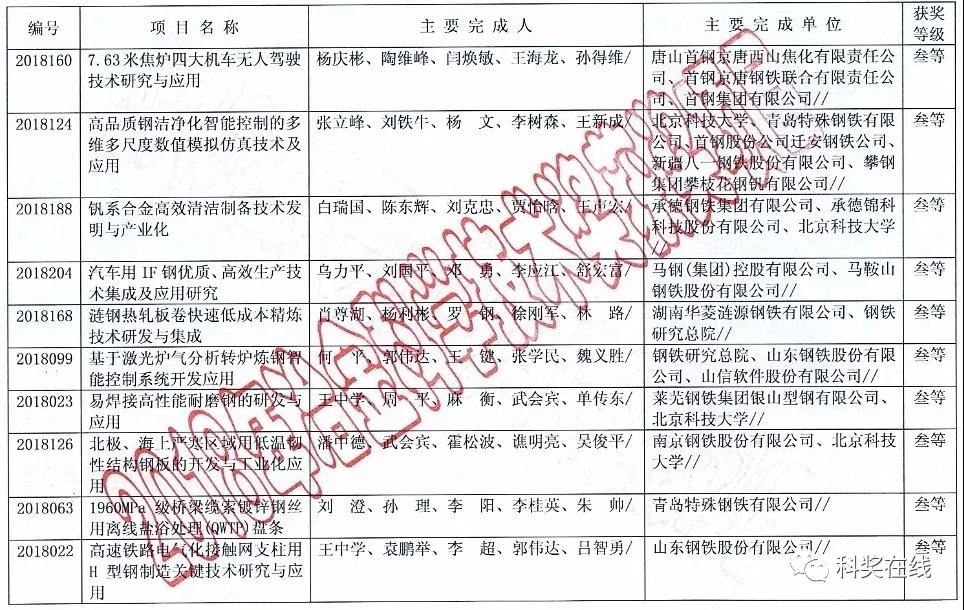 编号 项目名称 主要完成人 主要完成单位 获奖
等级
2018160 7.63米焦炉四大机车无人驾驶 杨庆彬、陶维峰、闫焕敏、王海龙、孙得维/ 唐山首钢京唐西山焦化有限责任公 叁等
技术研究与应用 司、首钢京唐钢铁联合有限责任公
司、首钢集团有限公司//
2018124 高品质钢洁净化智能控制的多 张立峰、刘铁牛、杨 文、李树森、王新成/ 北京科技大学、青岛特殊钢铁有限 叁等
维多尺度数值模拟仿真技术及 公司、首钢股份公司迁安钢铁公司、
应用 新疆八一钢铁股份有限公司、攀钢
集团攀枝花钢钒有限公司//
2018188 钒系合金高效清洁制备技术发 白瑞国、陈东辉、刘克忠、贾怡晗、王声宏/ 承德钢铁集团有限公司、承德锦科 叁等
明与产业化 科技股份有限公司、北京科技大学
2018204 汽车用IF钢优质、高效生产技 乌力平、刘国平、邓 勇、李应江、舒宏富/ 马钢(集团)控股有限公司、马鞍山 叁等
术集成及应用研究 钢铁股份有限公司//
2018168 涟钢热轧板卷快速低成本精炼 肖尊湖、杨利彬、罗 钢、徐刚军、林 路/ 湖南华菱涟源钢铁有限公司、钢铁 叁等
技术研发与集成 研究总院//
2018099 基于激光炉气分析转炉炼钢智 何 平、郭伟达、王 键、张学民、魏义胜/ 钢铁研究总院、山东钢铁股份有限 叁等
能控制系统开发应用 公司、山信软件股份有限公司//
2018023 易焊接高性能耐磨钢的研发与 王中学、周 平、麻 衡、武会宾、单传东/ 莱芜钢铁集团银山型钢有限公司、 叁等
应用 北京科技大学//
2018126 北极、海上严寒区域用低温韧 潘中德、武会宾、霍松波、谯明亮、吴俊平/ 南京钢铁股份有限公司、北京科技 叁等
性结构钢板的开发与工业化应 大学//
用
2018063 1960MPa 级桥梁缆索镀锌钢丝 刘 澄、孙 理、李 阳、李桂英、朱 帅/ 青岛特殊钢铁有限公司// 叁等
用离线盐浴处理(QWTP)盘条
2018022 高速铁路电气化接触网支柱用 王中学、袁鹏举、李 超、郭伟达、吕智勇/ 山东钢铁股份有限公司// 叁等
H 型钢制造关键技术研究与应
用
科奖在线